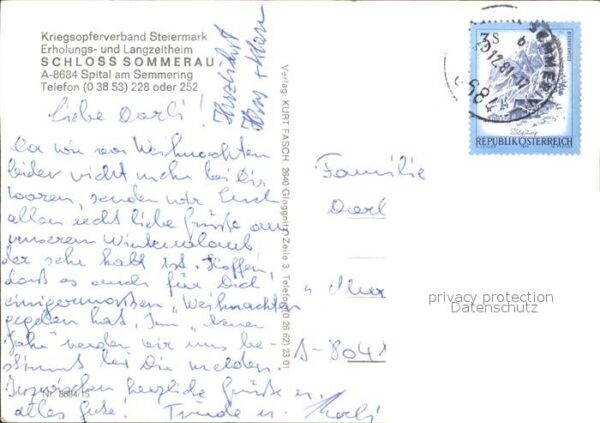 Kriegsopferverband Steiermark
Erholungs- und Langzeitheim
SCHLOSS SOMMERAU
A-8684 Spital am Semmering
Telefon (0 38 53) 228 oder 252
Herzlichst
Liebe Darli!
Da wir vor Weihnachten
leider nicht mehr bei Dir
waren, senden wir Euch
allen recht liebe Grüße aus
unserem Winterurlaub
der sehr kalt ist. Hoffen,
daß es auch für Dich
einigermaßen "Weihnachten"
gegeben hat. Im "neuen
Jahr" werden wir uns be-
stimmt bei Dir melden.
Inzwischen herzliche Grüße u.
alles Gute! Trude u. Karli
Nr. 8684/15
Verlag: KURT FASCH, 2640 Gloggnitz, Zeile 3, Telefon (0 26 62) 23 01
Familie
Darl
A-8041
3S
REPUBLIK ÖSTERREICH
8684
privacy protection
Datenschutz